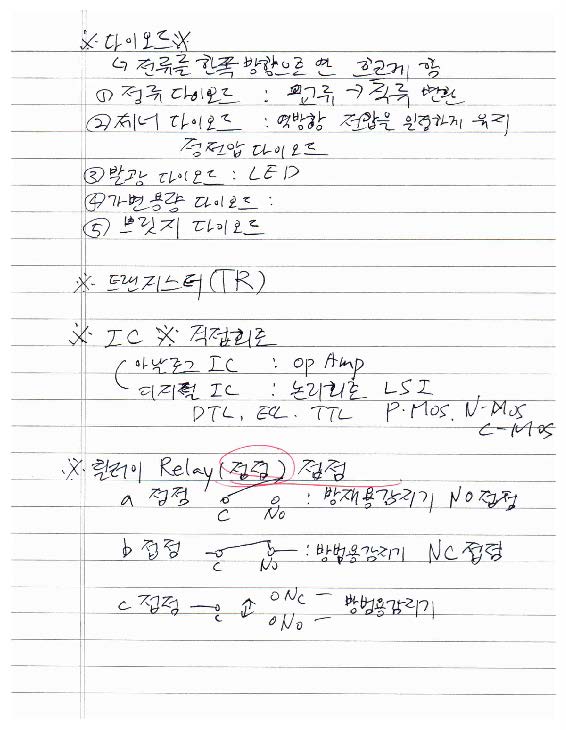 ※ 다이오드 ※
↳ 전류를 한쪽 방향으로 만 흐르게 함
① 정류 다이오드 : 교류 → 직류 변환
② 제너 다이오드 : 역방향 전압을 일정하게 유지
정전압 다이오드
③ 발광 다이오드 : LED
④ 가변용량 다이오드 :
⑤ 브릿지 다이오드
※ 트랜지스터(TR)
※ IC ※ 직접회로
아날로그 IC : OP Amp
디지털 IC : 논리회로 LSI
DTL, ECL. TTL P-MOS, N-MOS
C-MOS
※ 릴레이 Relay(접점) 접점
a 접점 C NO : 방재용감지기 NO접점
b 접점 C NO : 방범용감지기 NC접점
c 접점 C NC 방범용감지기
NO